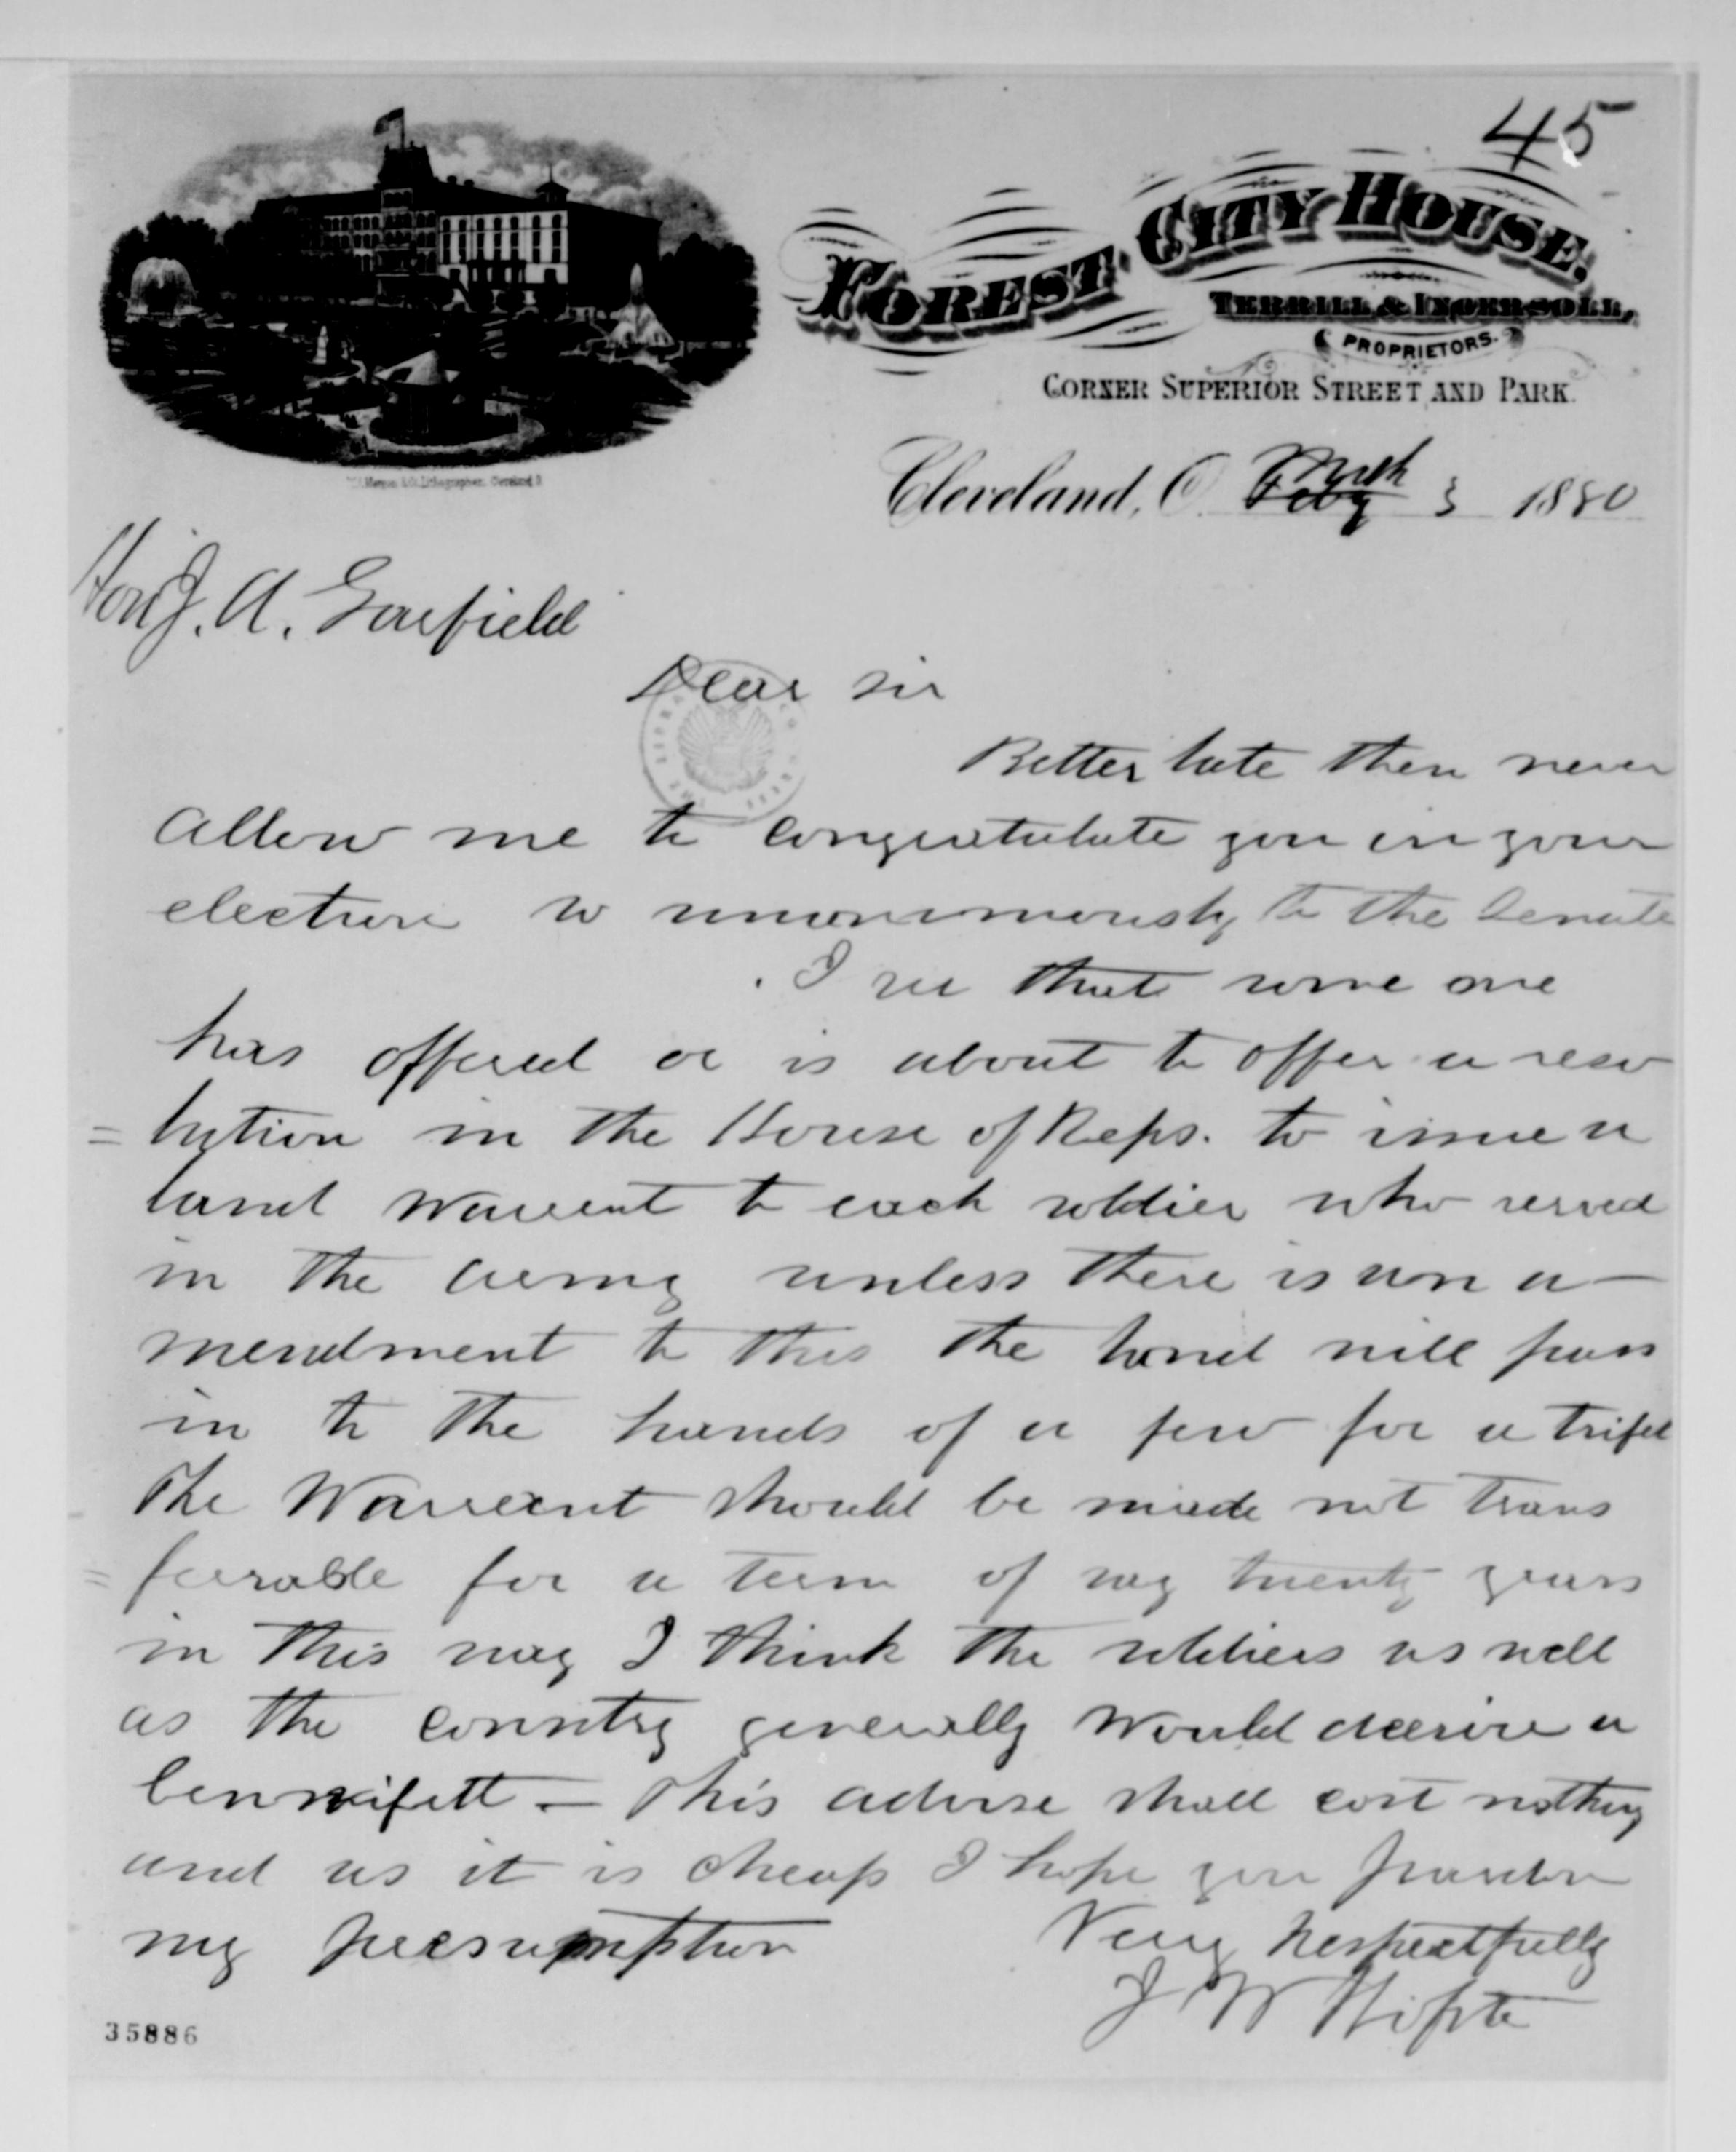 45
FOREST CITY HOUSE.
TERRILL & INGERSOLL,
PROPRIETORS.
CORNER SUPERIOR STREET AND PARK.
Cleveland, O. Feby Mrch 3 1880
Hon J. A. Garfield
Dear sir
Better late then never
allow me to congratulate you in your
election so unanimously to the Senate
I see that some one
has offered or is about to offer a reso
= lution in the House of Reps. to issue a
land warrent to each soldier who served
in the army unless there is an a-
mendment to this the land will pass
in to the hands of a few for a trifel
The Warrent should be made not trans
= ferrable for a term of say twenty years
in this way I think the soldiers as well
as the country generally would derive a
bennifitt - This advise shall cost nothing
and as it is cheap I hope you pardon
my presumption
Very Respectfully
J W
35886